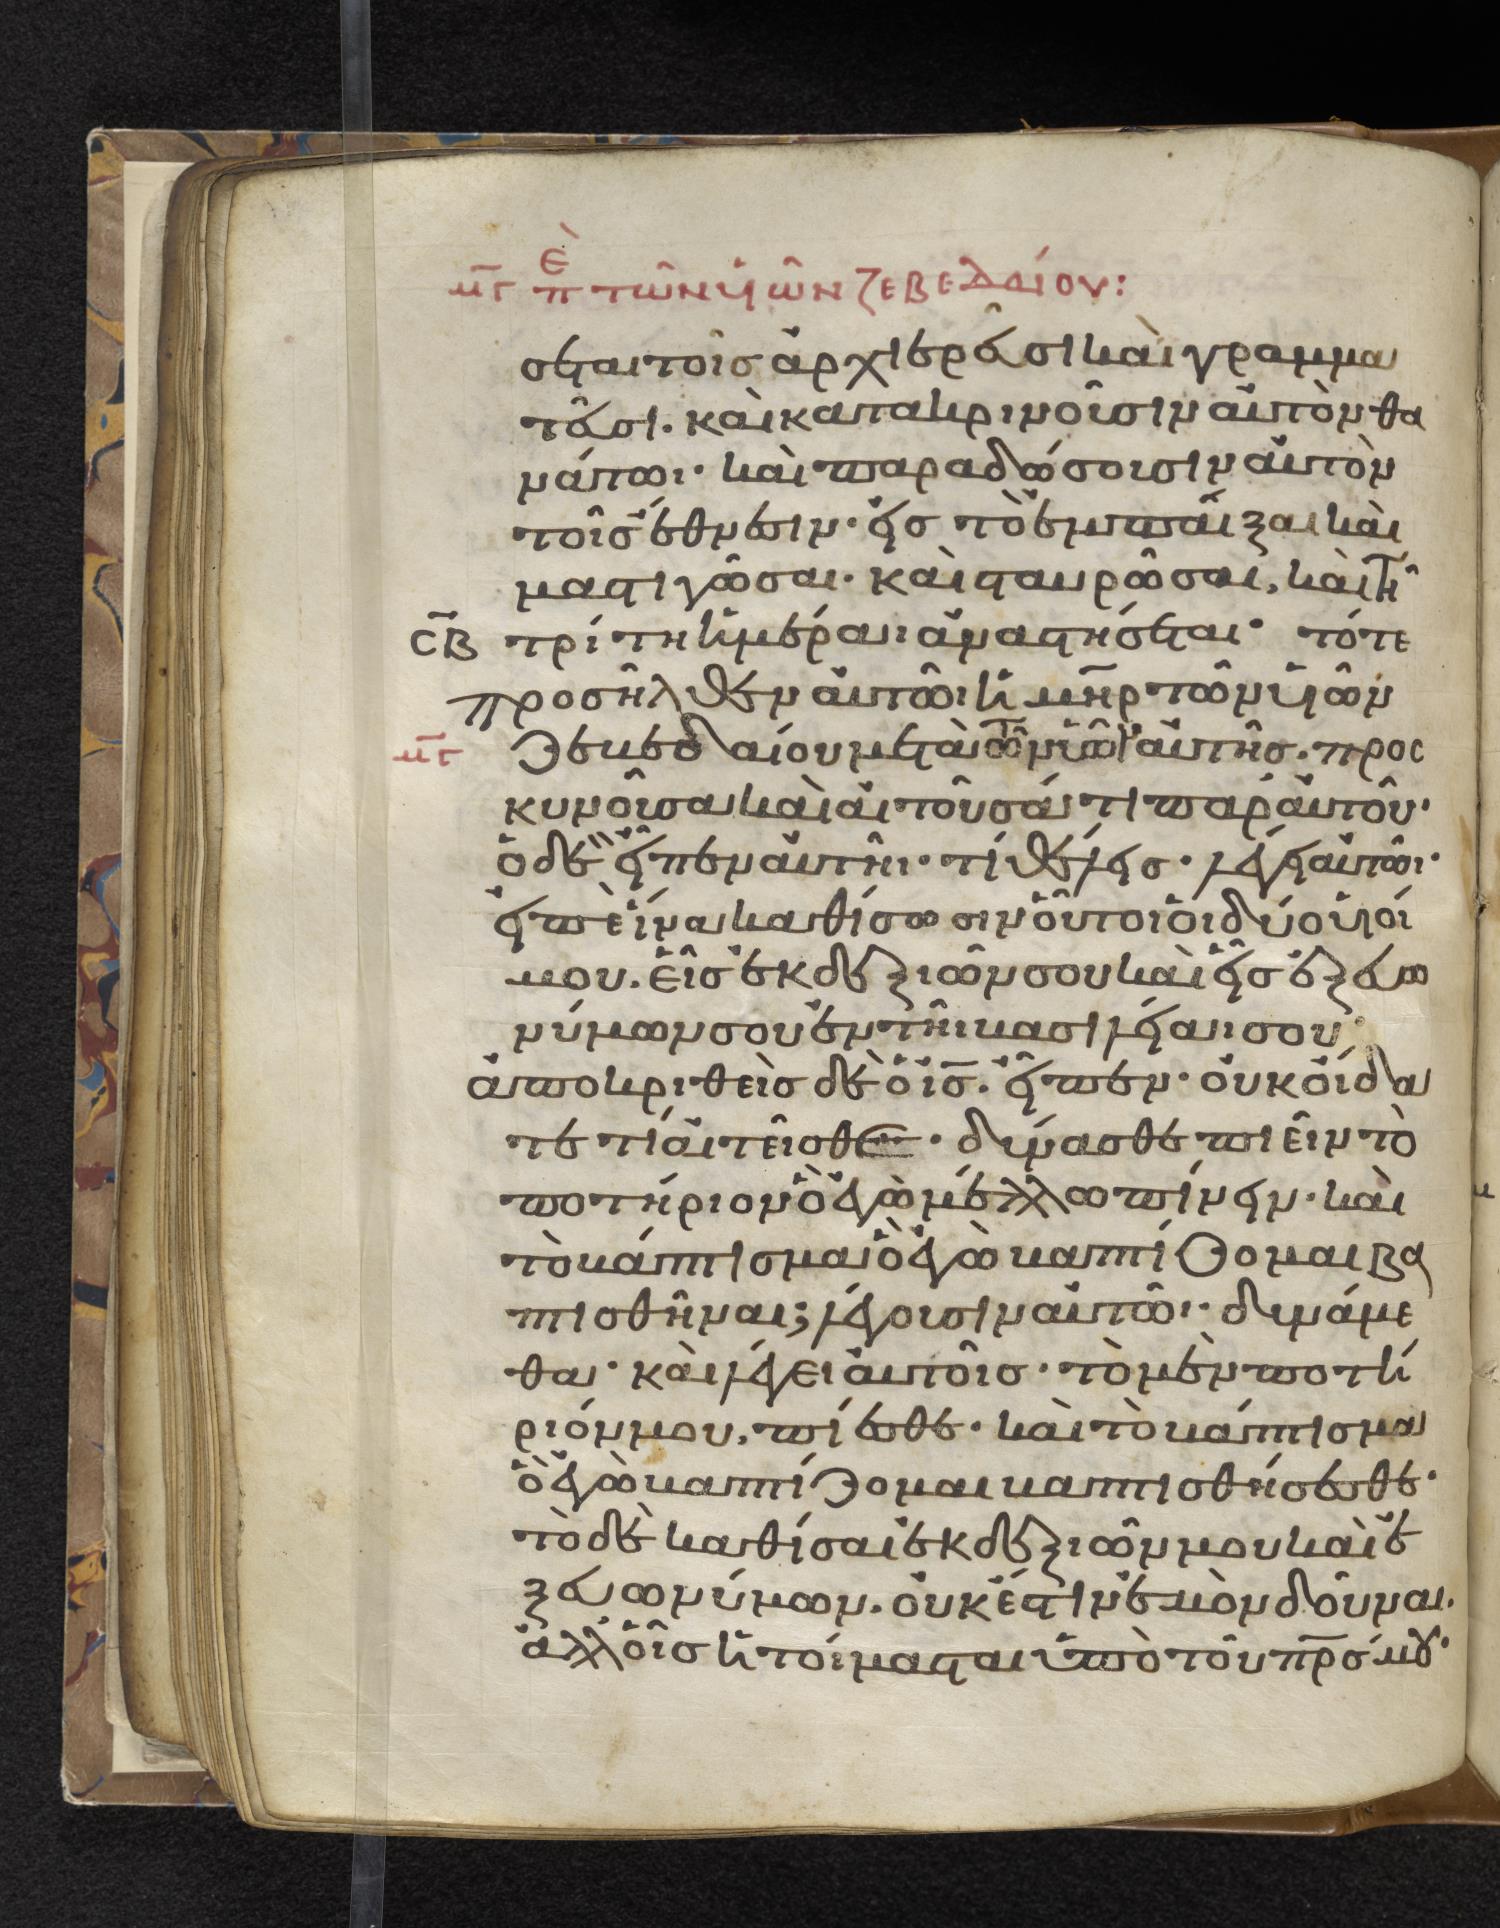 μγ πε τῶν υἱῶν ζεβεδαίου:
σεται τοῖς ἀρχιερεῦσι καὶ γραμμα
τεῦσι. καὶ κατακρινοῦσιν αὐτὸν θα
νάτωι· καὶ παραδώσουσιν αὐτὸν
τοῖς ἔθνεσιν· εἰς τὸ ἐμπαῖξαι καὶ
μαστιγῶσαι· καὶ σταυρῶσαι, καὶ τῆ
σβ τρίτη ἡμέραι ἀναστήσεται· τότε
προσῆλθεν αὐτῶι ἡ μηρ τῶν υἱῶν
μγ ζεβεδαίου μετὰ τῶν υἱῶν αὐτῆς. προσ
κυνοῦσα καὶ αἰτοῦσά τι παρ' αὐτοῦ·
ὁ δὲ εἶπεν αὐτῆι· τί θέλεις· λέγει αὐτῶι·
εἰπὲ ἵνα καθίσωσιν οὗτοι οἱ δύο υἱοί
μου. εἷς ἐκ δεξιῶν σου καὶ εἷς ἐξ εὐω
νύμων σου ἐν τῆι βασιλείαι σου·
ἀποκριθεὶς δὲ ὁ ις. εἶπεν· οὐκ οἴδα
τε τί αἰτεῖσθε· δύνασθε πιεῖν τὸ
ποτήριον ὃ ἐγὼ μέλλω πίνειν· καὶ
τὸ βάπτισμα ὃ ἐγὼ βαπτίζομαι βα
πτισθῆναι; λέγουσιν αὐτῶ· δυνάμε
θα· καὶ λέγει αὐτοῖς· τὸ μὲν ποτή
ριόν μου, πίεσθε· καὶ τὸ βάπτισμα
ὃ ἐγὼ βαπτίζομαι βαπτισθήσεσθε·
τὸ δὲ καθίσαι ἐκ δεξιῶν μου καὶ ἐ
ξ εὐωνύμων. οὐκ ἔστιν ἐμὸν δοῦναι.
ἀλλ' οἷς ἡτοίμασται ὑπὸ τοῦ πρσ μου·